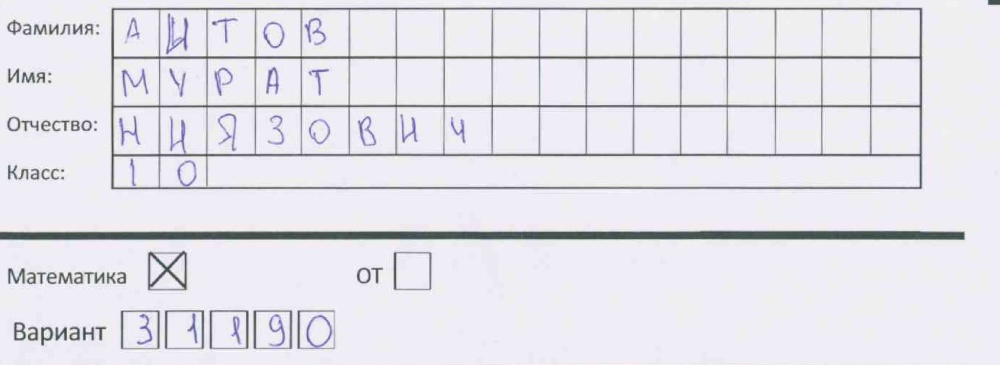 Фамилия: АИТОВ
Имя: МУРАТ
Отчество: НИЯЗОВИЧ
Класс: 10
Математика ☒ ОТ ☐
Вариант 31190